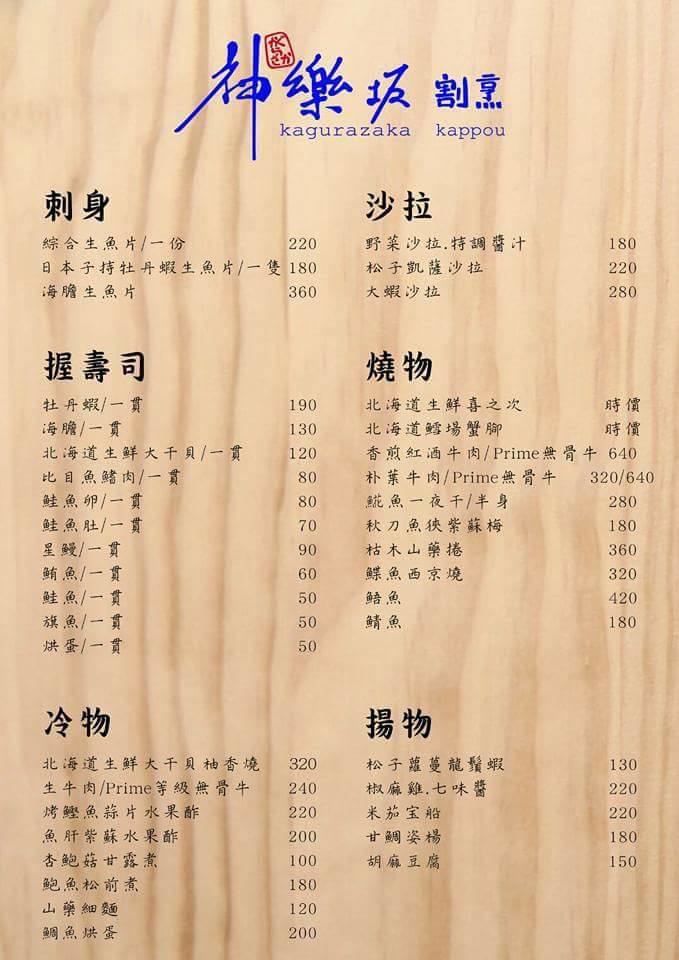 神樂坂 割烹
かぐらざか
kagurazaka kappou
刺身
綜合生魚片/一份 220
日本子持牡丹蝦生魚片/一隻 180
海膽生魚片 360
握壽司
牡丹蝦/一貫 190
海膽/一貫 130
北海道生鮮大干貝/一貫 120
比目魚鰭肉/一貫 80
鮭魚卵/一貫 80
鮭魚肚/一貫 70
星鰻/一貫 90
鮪魚/一貫 60
鮭魚/一貫 50
旗魚/一貫 50
烘蛋/一貫 50
冷物
北海道生鮮大干貝柚香燒 320
生牛肉/Prime等級無骨牛 240
烤鰹魚蒜片水果酢 220
魚肝紫蘇水果酢 200
杏鮑菇甘露煮 100
鮑魚松前煮 180
山藥細麵 120
鯛魚烘蛋 200
沙拉
野菜沙拉.特調醬汁 180
松子凱薩沙拉 220
大蝦沙拉 280
燒物
北海道生鮮喜之次 時價
北海道鱈場蟹腳 時價
香煎紅酒牛肉/Prime無骨牛 640
朴葉牛肉/Prime無骨牛 320/640
𩸽魚一夜干/半身 280
秋刀魚挾紫蘇梅 180
枯木山藥捲 360
鰈魚西京燒 320
鯃魚 420
鯖魚 180
揚物
松子蘿蔓龍鬚蝦 130
椒麻雞.七味醬 220
米茄宝船 220
甘鯛姿楊 180
胡麻豆腐 150